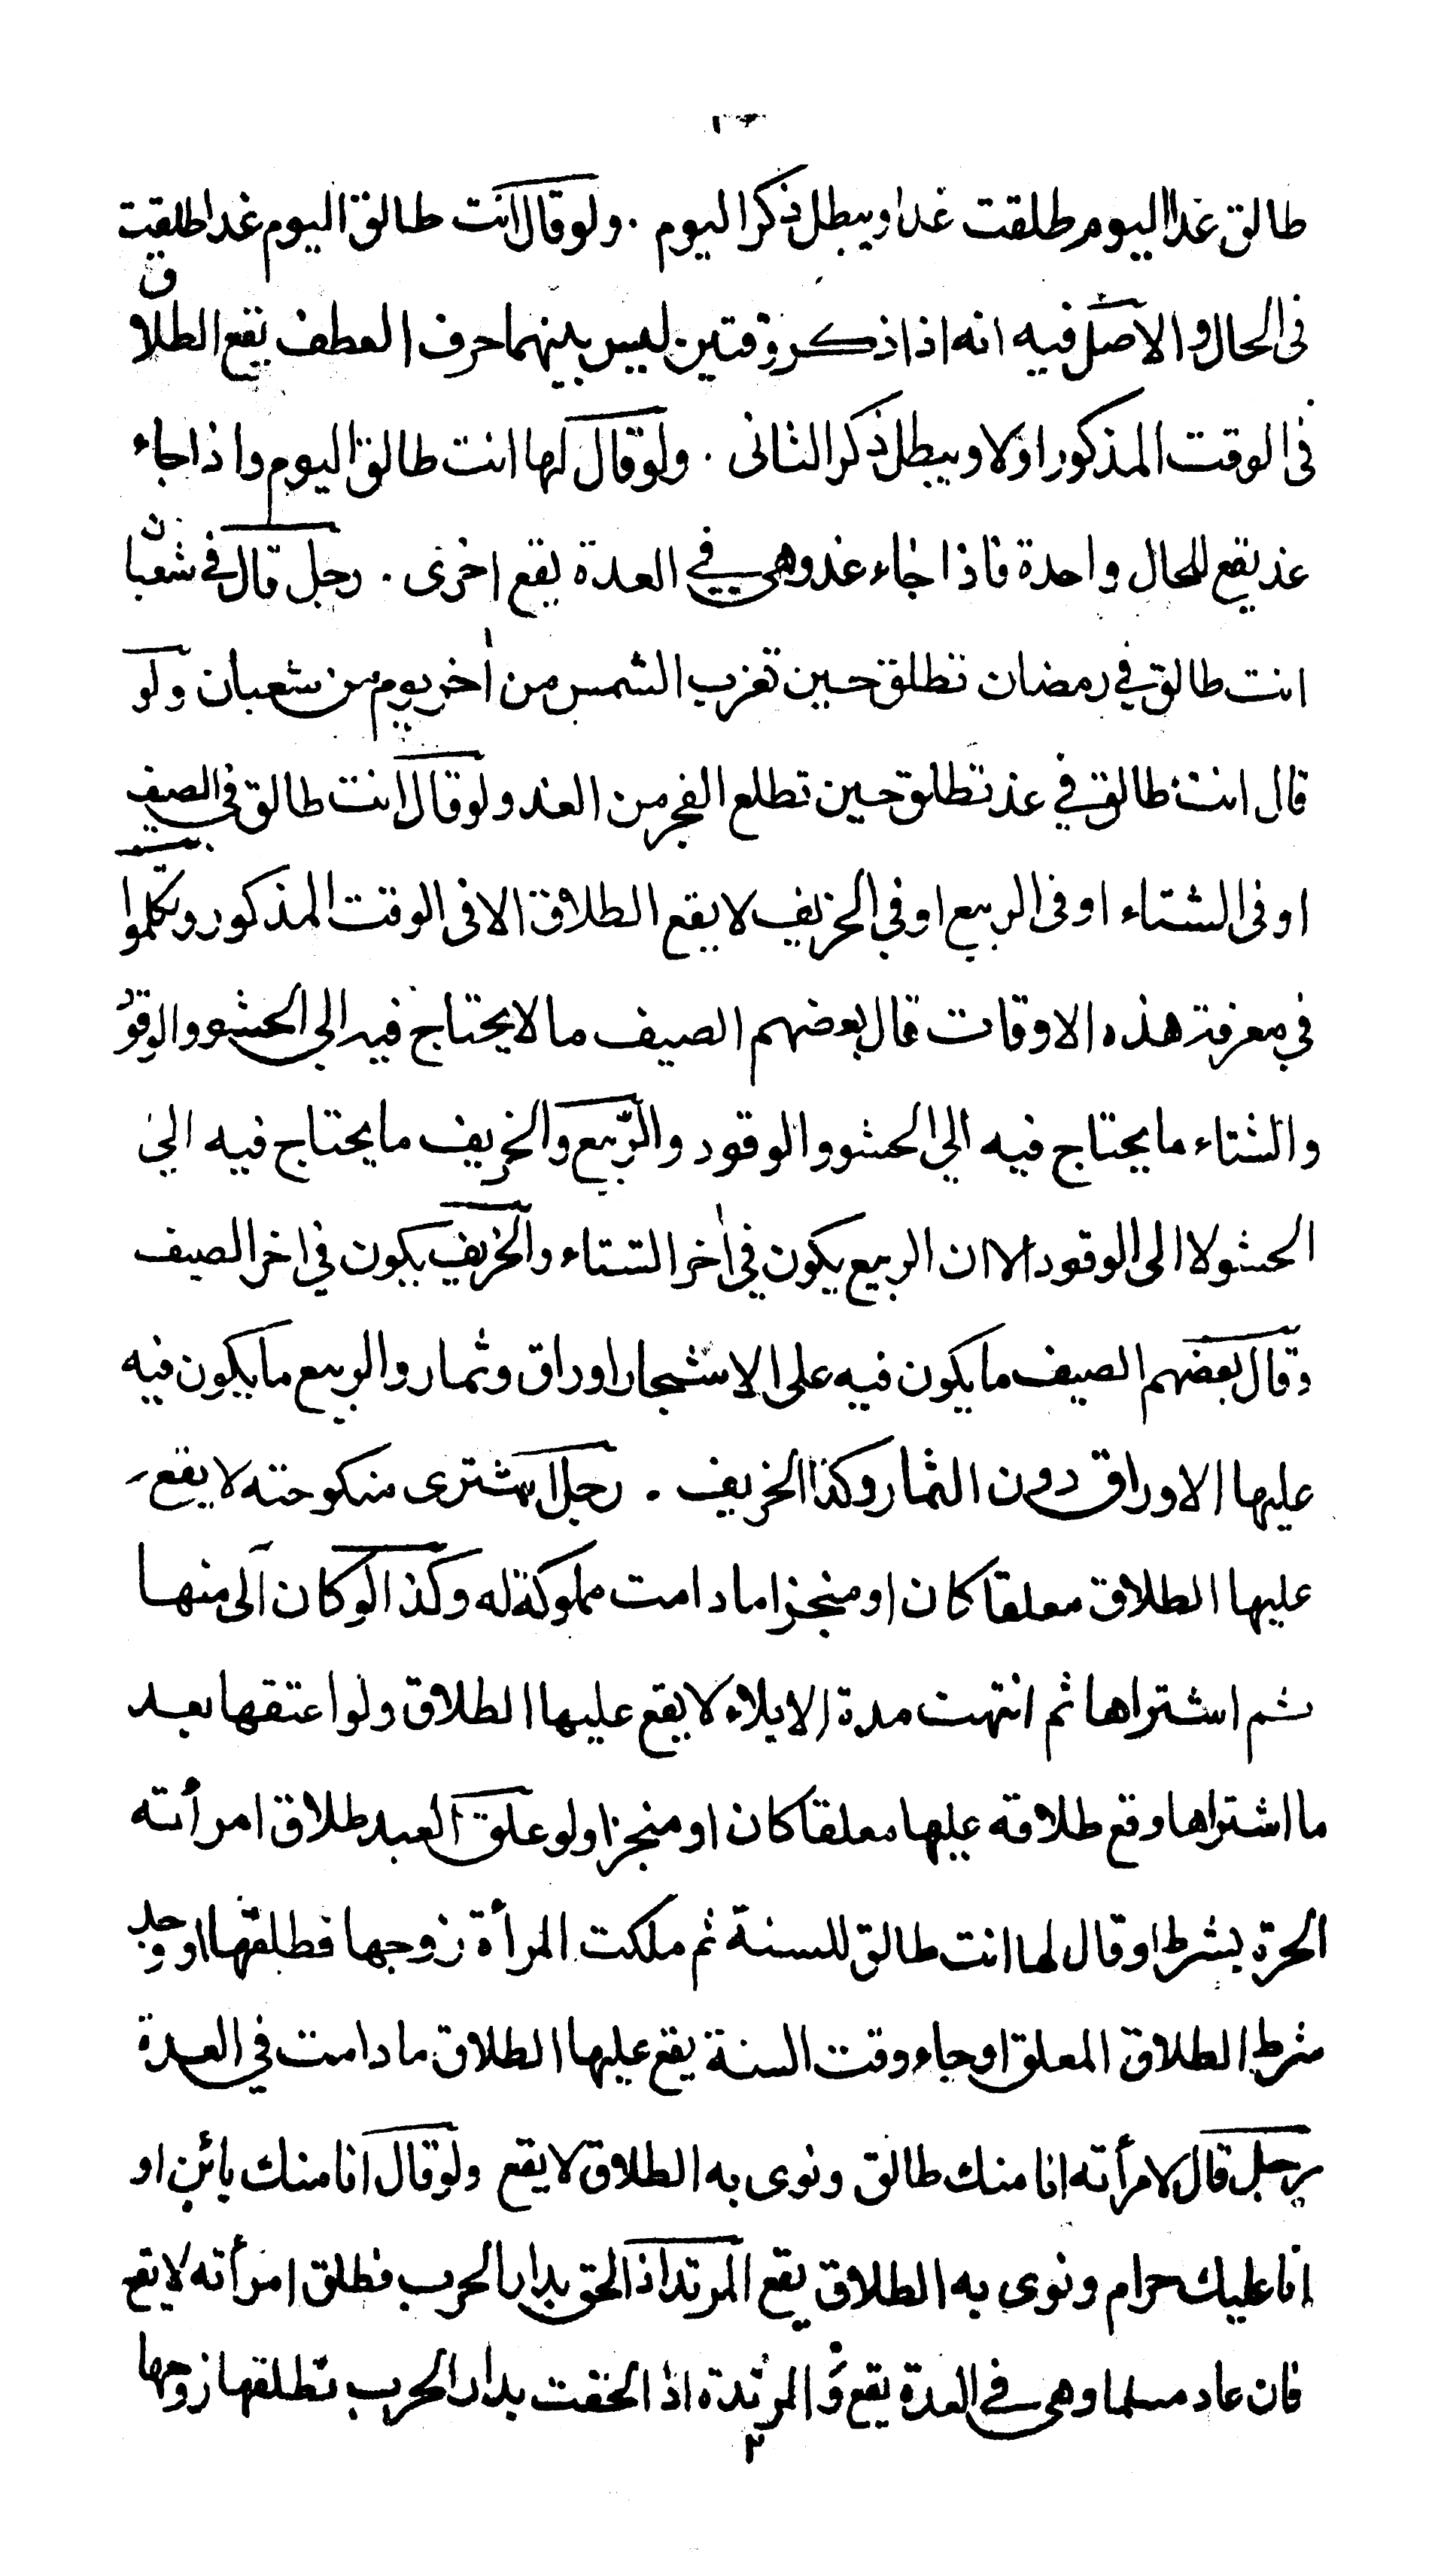 طالق غدا اليوم طلقت غدا ويبطل ذكر اليوم . ولو قال انت طالق اليوم غدا طلقت
فى الحال والاصل فيه انه اذا ذكر وقتين ليس بينهما حرف العطف يقع الطلاق
فى الوقت المذكور اولا ويبطل ذكر الثانى . ولو قال لها انت طالق اليوم واذا جاء
غد يقع للحال واحدة فاذا جاء غد وهى في العدة يقع اخرى . رجل قال في شعبان
انت طالق في رمضان تطلق حين تغرب الشمس من اخر يوم من شعبان ولو
قال انت طالق في غد تطلق حين تطلع الفجر من الغد ولو قال انت طالق في الصيف
او فى الشتاء او فى الربيع او في الخريف لا يقع الطلاق الا فى الوقت المذكور وتكلموا
في معرفة هذه الاوقات قال بعضهم الصيف ما لا يحتاج فيه الى الحشو والوقود
والشتاء ما يحتاج فيه الي الحشو والوقود والرّبيع والخريف ما يحتاج فيه الي
الحشو لا الى الوقود الا ان الربيع يكون في اخر الشتاء والخريف يكون في اخر الصيف
وقال بعضهم الصيف ما يكون فيه على الاشجار اوراق وثمار والربيع ما يكون فيه
عليها الاوراق دون الثمار وكذا الخريف . رجل اشترى منكوحته لا يقع
عليها الطلاق معلقا كان او منجزا ما دامت مملوكة له وكذا لو كان آلى منها
ثم اشتراها ثم انتهت مدة الايلاء لا يقع عليها الطلاق ولو اعتقها بعد
ما اشتراها وقع طلاقه عليها معلقا كان او منجزا ولو علق العبد طلاق امرأته
الحرة بشرط او قال لها انت طالق للسنة ثم ملكت المرأة زوجها فطلقها او وجد
شرط الطلاق المعلق او جاء وقت السنة يقع عليها الطلاق ما دامت في العدة
رجل قال لامرأته انا منك طالق ونوى به الطلاق لا يقع ولو قال انا منك بائن او
انا عليك حرام ونوى به الطلاق يقع المرتد اذا لحق بدار الحرب فطلق امرأته لا يقع
فان عاد مسلما وهى في العدة يقع و المرتدة اذا لحقت بدار الحرب تطلقها زوجها
٢